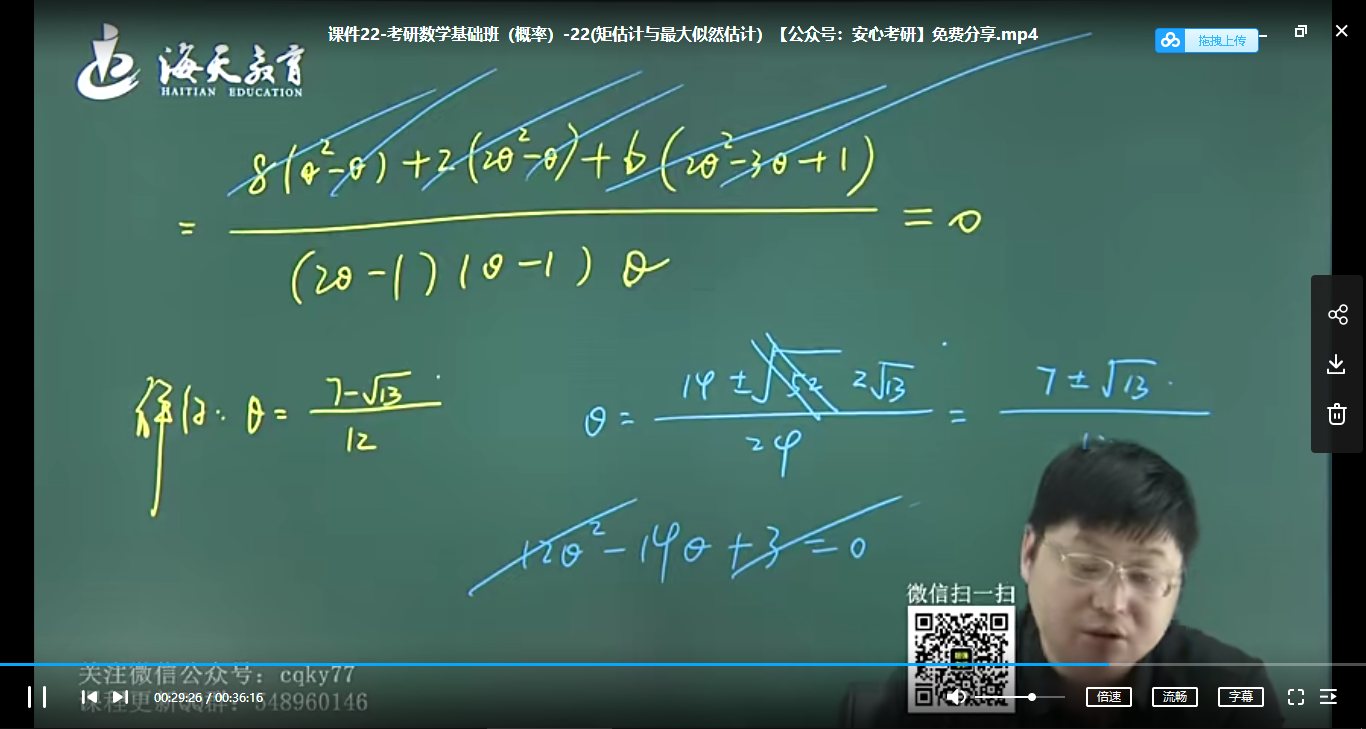 课件22-考研数学基础班（概率）-22(矩估计与最大似然估计) 【公众号：安心考研】免费分享.mp4
拖拽上传
海天教育
HAITIAN EDUCATION
= 8(θ²-θ)+2(2θ²-θ)+6(2θ²-3θ+1) / (2θ-1)(θ-1)θ = 0
解得: θ = 7-√13 / 12
θ = 14±√52 2√13 / 24 = 7±√13
12θ²-14θ+3=0
微信扫一扫
关注微信公众号：cqky77
课程更新QQ群：548960146
00:29:26 / 00:36:16
倍速
流畅
字幕